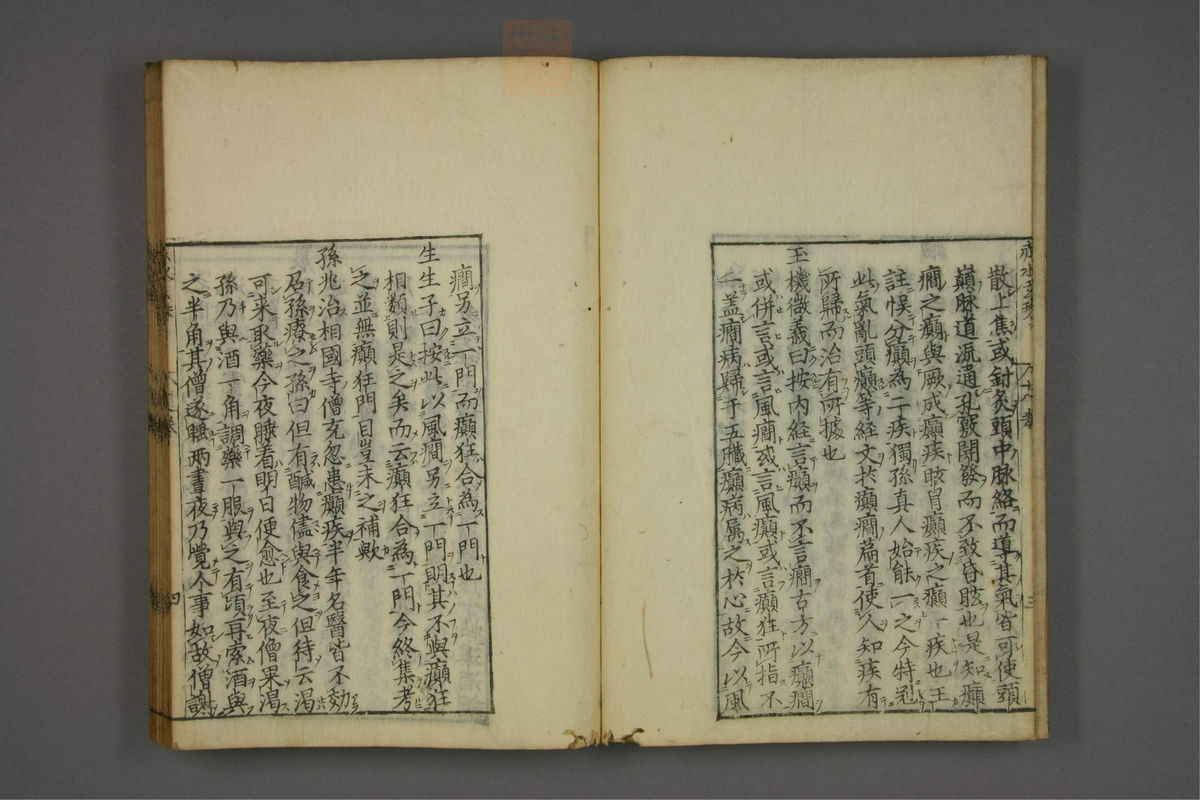 散上焦或針灸頭中脉絡而導其氣皆可使頭
巔脉道流通孔竅開發而不致昏眩也是知癲
癇之癲與厥成癲疾眩冒癲疾之癲一疾也王
註悞分癲為二疾獨孫真人始能一之今特冠
此氣亂頭癲等經文扵癲癇篇者使人知疾有
所歸而治有所據也
玉機微義曰按内経言癲而不言癇古方以癲癇
或併言或言風癇或言風癲或言癲狂所指不
一盖癇病歸于五臟癲病属之扵心故今以風
癇另立一門而癲狂合為一門也
生生子曰按此以風癇另立一門明其不與癲狂
相類則是之矣而云癲狂合為一門今終集考
之並無癲狂門目豈未之補歟
孫兆治相國寺僧充忽患癲疾半年名醫皆不効
召孫療之孫曰但有鹹物儘與食之但待云渴
可来取藥今夜睡着明日便愈也至夜僧果渴
孫乃與酒一角調藥一服與之有頃再索酒與
之半角其僧遂睡兩晝夜乃覺人事如故僧謝
四